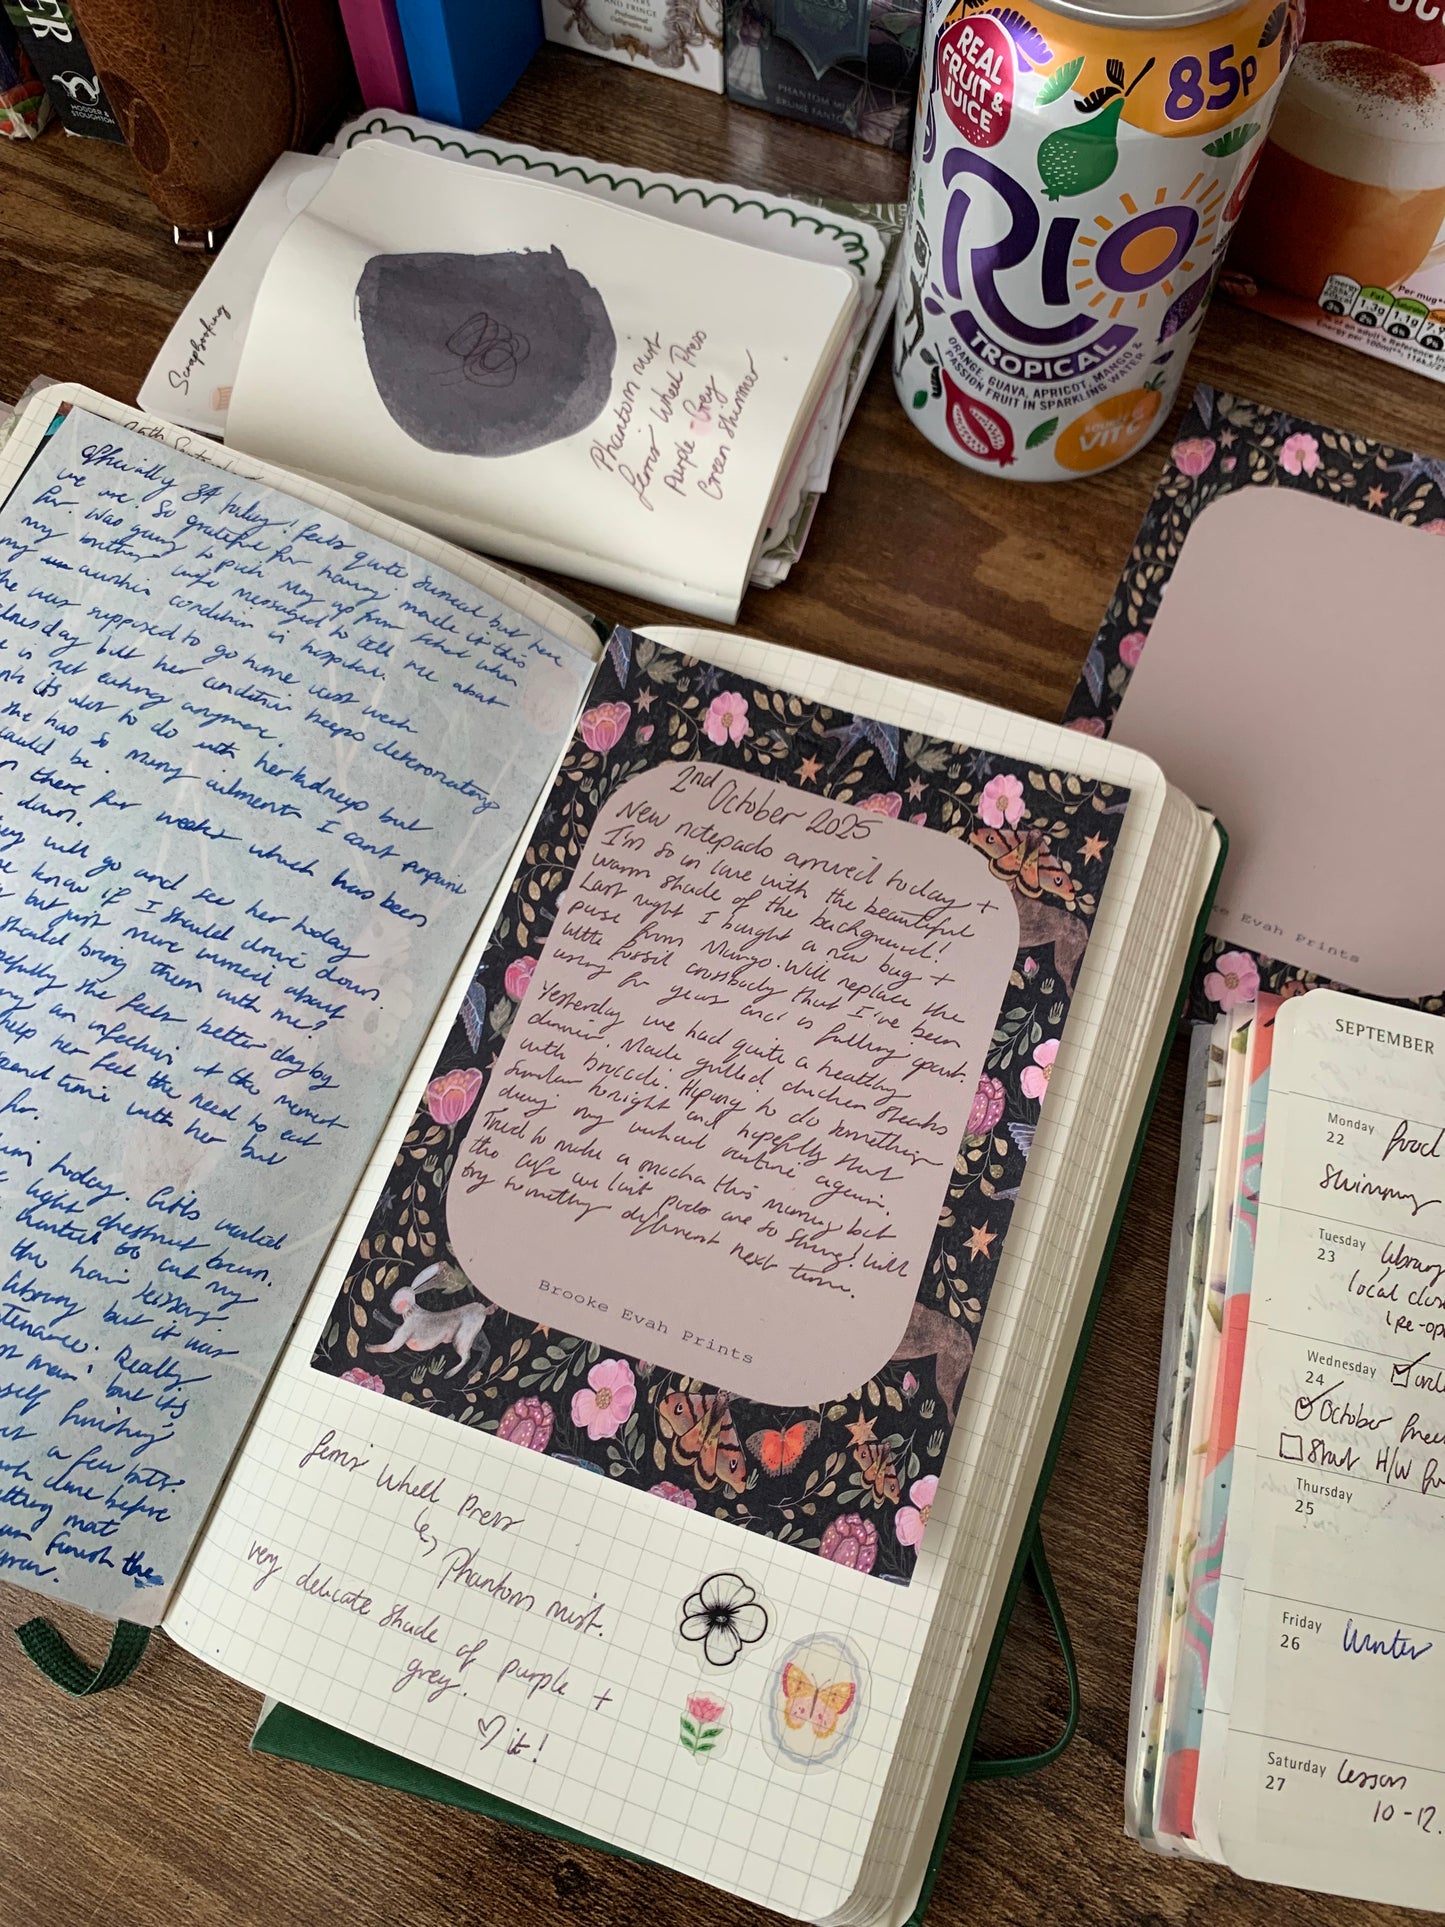 HODDER & STOUGHTON
AND FRINGE
Professional
Calligraphy Set
PHANTOM MI
BRUME FANTO
REAL
FRUIT &
JUICE
85p
RIO
TROPICAL
ORANGE, GUAVA, APRICOT, MANGO &
PASSION FRUIT IN SPARKLING WATER
VIT C
Per mug
Energy
Fat
1.3g
1.1g
Scrapbooking
Phantom mist
Ferris Wheel Press
Purple - Grey
Green Shimmer
Officially 34 today! Feels quite surreal but here
we are. So grateful for having made it this
far. Was going to pick up from school when
my brother's wife messaged to tell me about
my auntie's condition in hospital.
he was supposed to go home last week
dnesday but her condition keeps deteriorating
e is not eating anymore.
its also to do with her kidneys but
she has so many ailments I cant pinpoint
could be.
n there for weeks which has been
down.
ey will go and see her today
e know if I should drive down
but just more worried about
should bring them with me?
pefully she feels better day by
an infection at the moment
help her feel the need to eat
spend time with her but
for.
today. Girls wanted
light chestnut brown.
wanted to cut my
the hair scissors
library but it was
tenance. Really
but its
self finishing
a few bits.
done before
tting mat
finish the
2nd October 2025
New notepads arrived today +
I'm so in love with the beautiful
warm shade of the background!
Last night I bought a new bag +
purse from Mango. Will replace the
little fossil crossbody that I've been
using for years and is falling apart.
Yesterday we had quite a healthy
dinner. Made grilled chicken steaks
with broccoli. Hoping to do something
similar tonight and hopefully start
doing my workout routine again.
Tried to make a mocha this morning but
the cafe au lait pods are so strong! Will
try something different next time.
Brooke Evah Prints
Ferris Wheel Press
↳ Phantom mist.
very delicate shade of purple +
grey.
♡ it!
ke Evah Prints
SEPTEMBER
Monday
22 food
Swimming
Tuesday
23 library
local
re-op
Wednesday
24
October
Start H/W
Thursday
25
Friday
26 Winter
Saturday
27 lesson
10-12.